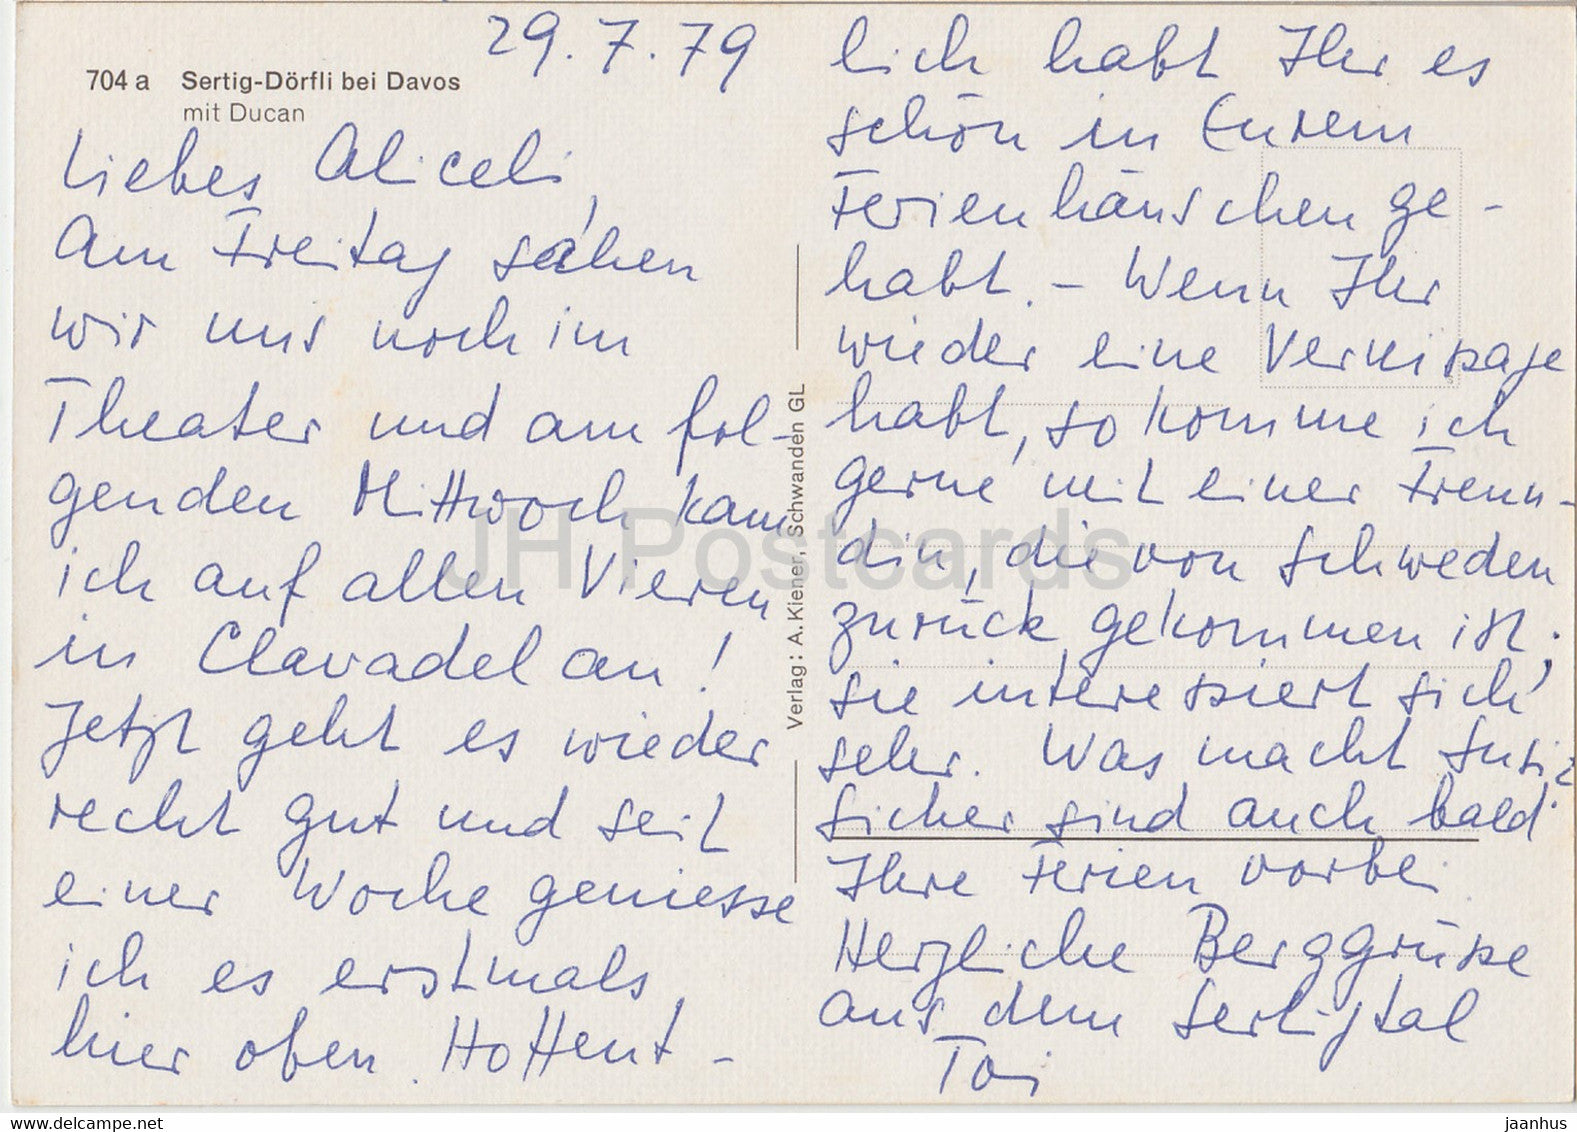 29.7.79
704 a Sertig-Dörfli bei Davos
mit Ducan
Liebes Aliceli,
Am Freitag sahen
wir uns noch im
Theater und am fol-
genden Mittwoch kam
ich auf allen Vieren
in Clavadel an!
Jetzt geht es wieder
recht gut und seit
einer Woche geniesse
ich es erstmals
hier oben. Hoffent-
Verlag: A. Kiener, Schwanden GL
lich habt Ihr es
schön in Eurem
Ferienhäuschen ge-
habt. – Wenn Ihr
wieder eine Vernissage
habt, so komme ich
gerne mit einer Freun-
din, die von Schweden
zurück gekommen ist;
sie interessiert sich
sehr. Was macht Susi?
Sicher sind auch bald
Ihre Ferien vorbei.
Herzliche Berggrüsse
aus dem Sertigtal
JH Postcards
www.delcampe.net
jaanhus